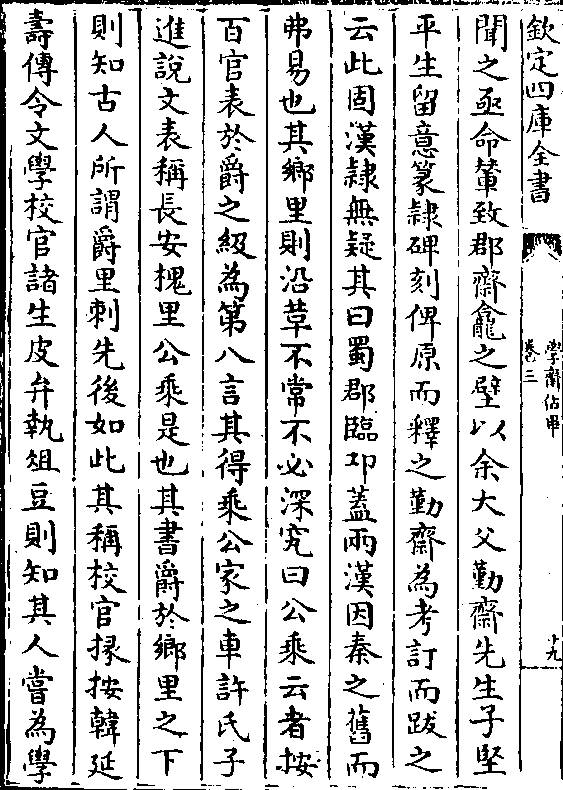 欽定四庫全書
學齋佔畢
卷三
十九
聞之亟命輦致郡齋龕之壁以余大父勤齋先生子堅
平生留意篆隷碑刻俾原而釋之勤齋為考訂而跋之
云此固漢隷無疑其曰蜀郡臨邛蓋兩漢因秦之舊而
弗易也其鄉里則沿革不常不必深究曰公乘云者按
百官表於爵之級為第八言其得乘公家之車許氏子
進說文表稱長安槐里公乘是也其書爵於鄉里之下
則知古人所謂爵里刺先後如此其稱校官掾按韓延
壽傳令文學校官諸生皮弁執俎豆則知其人嘗為學